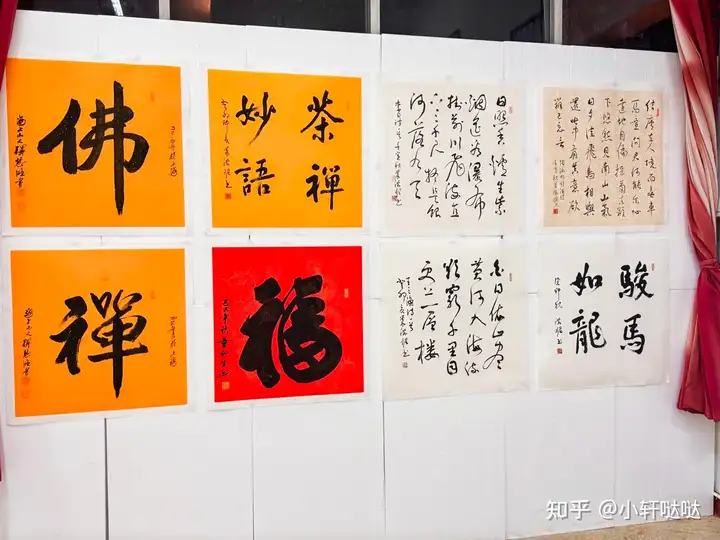 佛
茶禪
妙語
日照香爐生紫
烟遙看瀑布
掛前川飛流直
下三千尺疑是銀
河落九天
結廬在人境而無車
馬喧問君何能爾心
遠地自偏採菊東籬
下悠然見南山山氣
日夕佳飛鳥相與
還此中有真意欲
辨已忘言
禪
福
白日依山盡
黃河入海流
欲窮千里目
更上一層樓
駿馬
如龍
知乎 @小轩哒哒